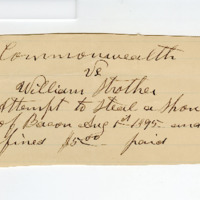 Commonwealth
Vs
William Strother
Attempt to Steal a Shou
of Bacon Aug 1st 1895 and
fined $5.00 paid